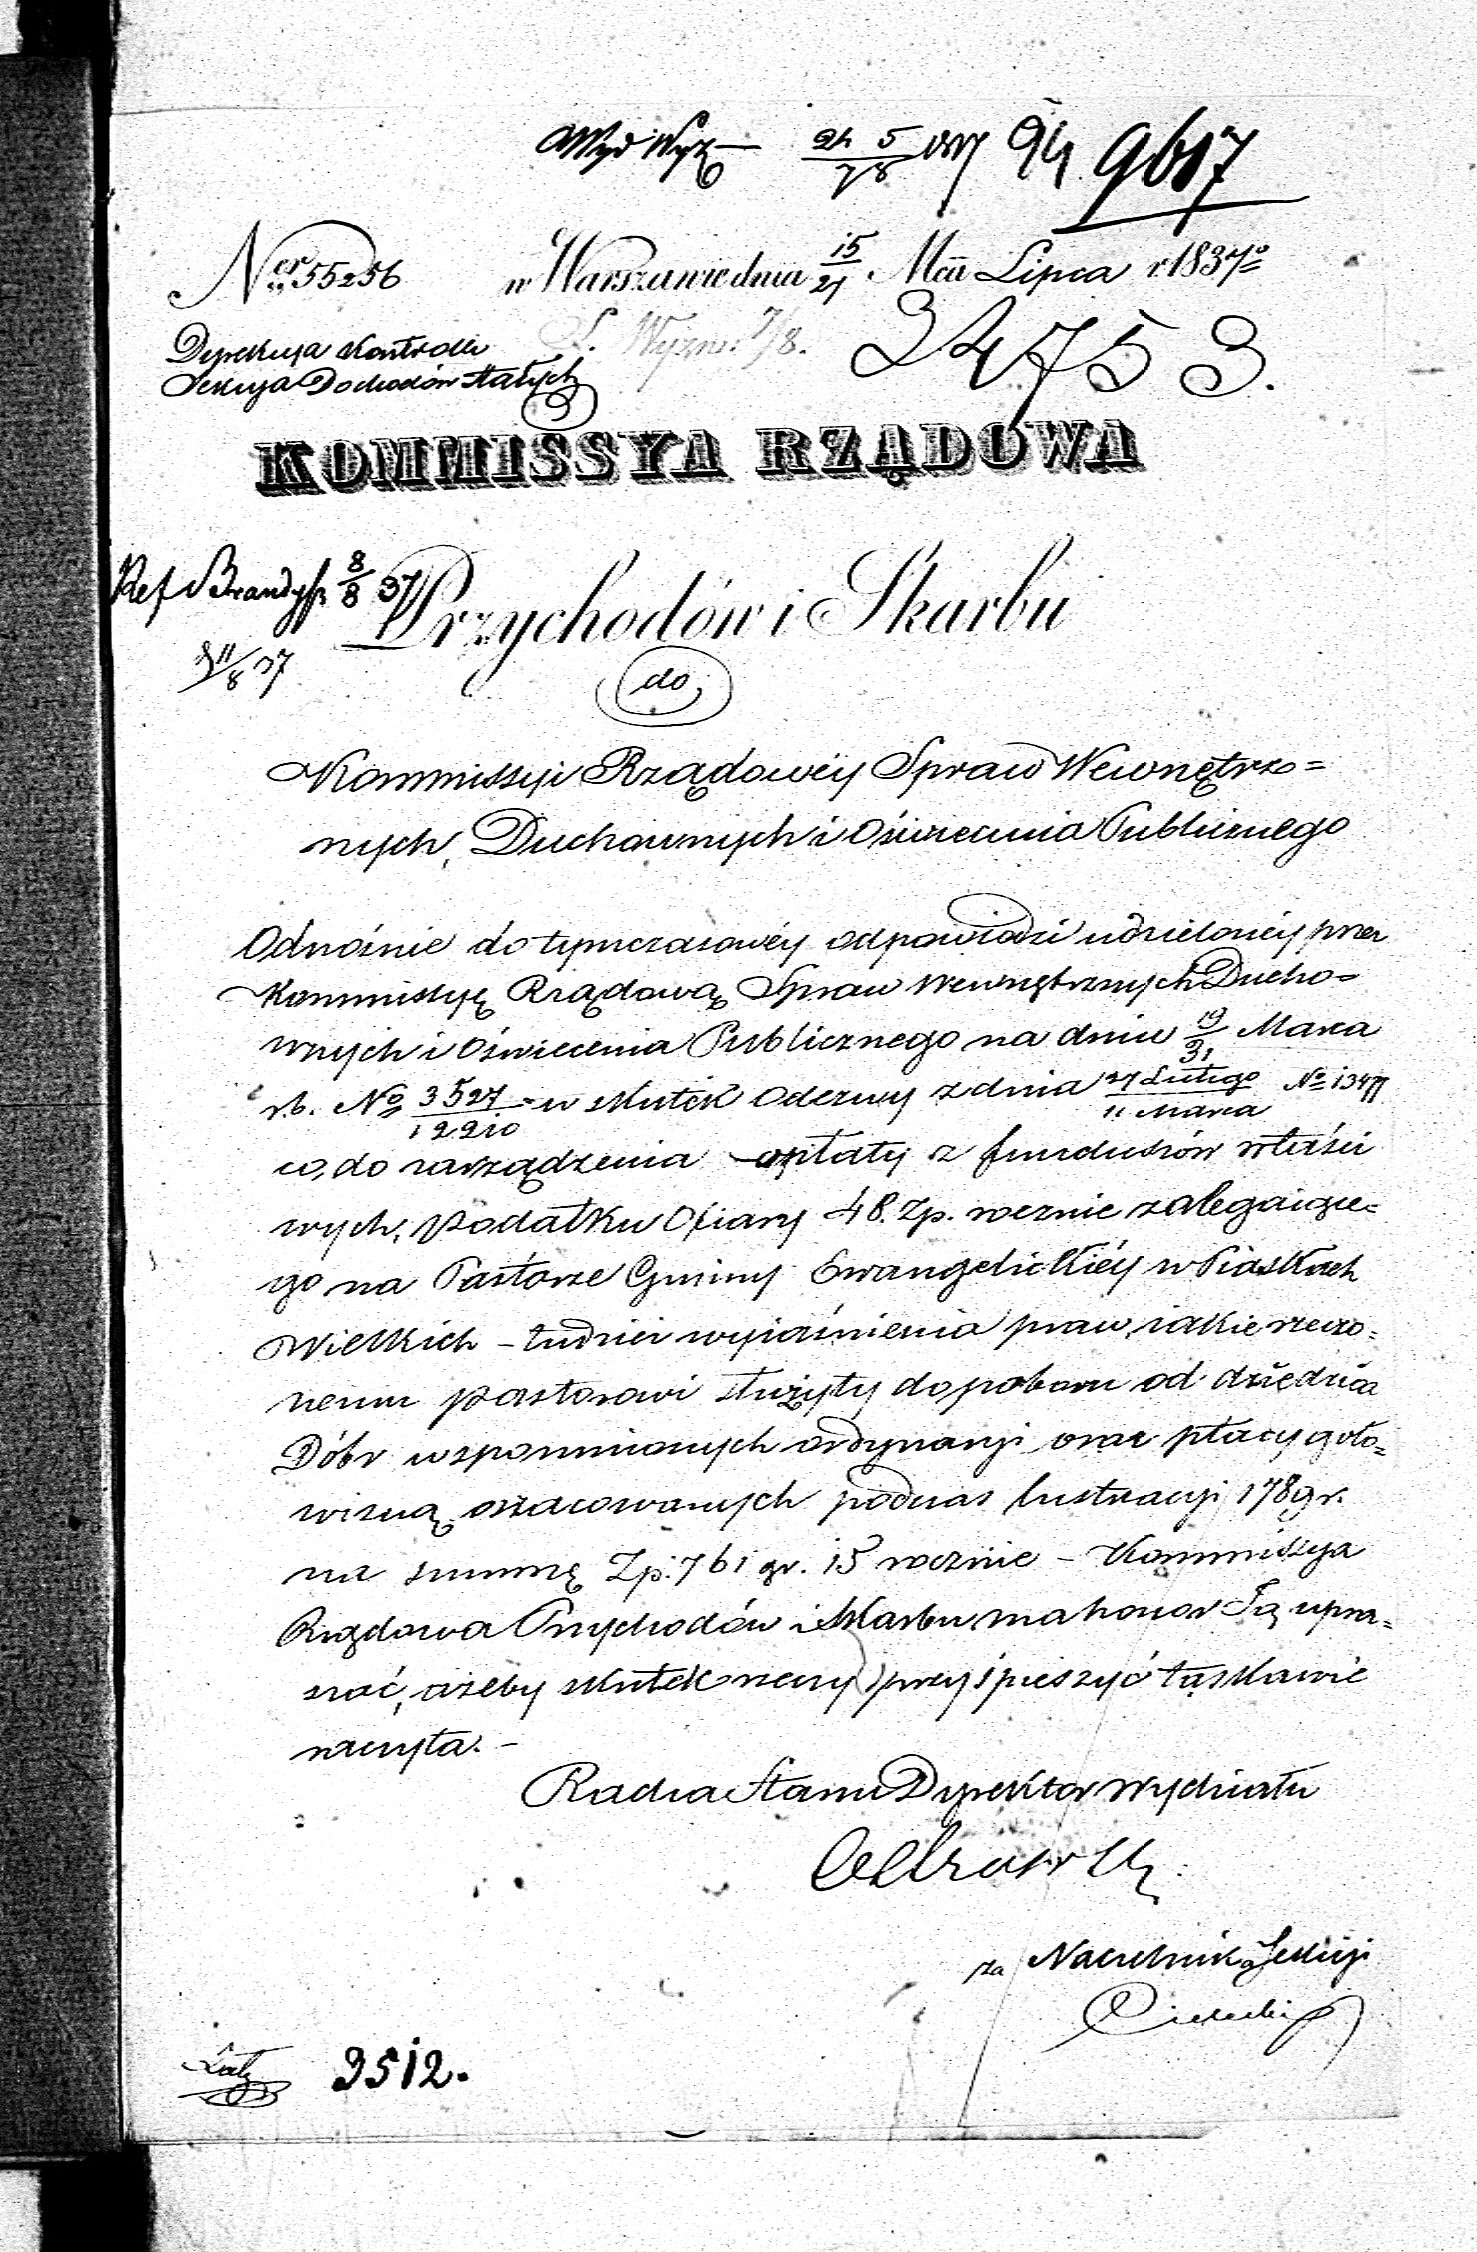 Wyd Wyz 24 5/78 94 9617
Ner 55256 w Warszawie dnia 15/27 Mca Lipca r 1837o
Dyrekcya Kontrolli S. Wyzn. 7/8. 24753.
Sekcya Dochodów stałych
KOMMISSYA RZĄDOWA
Ref Brandys 8/8 37
Przychodów i Skarbu
11/8 37
do
Kommissyi Rządowéy Spraw Wewnętrz=
nych, Duchownych i Oświecenia Publicznego
Odnośnie do tymczasowéy odpowiedzi udzielonéy przez
Kommissyę Rządową Spraw Wewnętrznych Ducho=
wnych i Oświecenia Publicznego na dniu 19/31 Marca
r.b. No 3527/12210 w skutek Odezwy z dnia 27 Lutego/11 Marca No 13477
co, do zarządzenia opłaty z funduszów właści
wych, podatku Ofiary 48. Zp. rocznie zalegaiące=
go na Pastorze Gminy Ewangelickiéy w Piaskach
Wielkich – tudzież wyiaśnienia praw, iakie rzeczo=
nemu pastorowi służyły do poboru od dziedzica
Dóbr wspomnionych ordynaryi oraz płacy goto=
wizną, oszacowanych podczas lustracyi 1789 r.
na summę Zp. 761 gr. 15 rocznie – Kommissya
Rządowa Przychodów i Skarbu, ma honor Ją upra=
szać, ażeby skutek rzeczy przyśpieszyć łaskawie
raczyła. –
Radca Stanu Dyrektor Wydziału
za Naczelnik Sekcyi
3512.